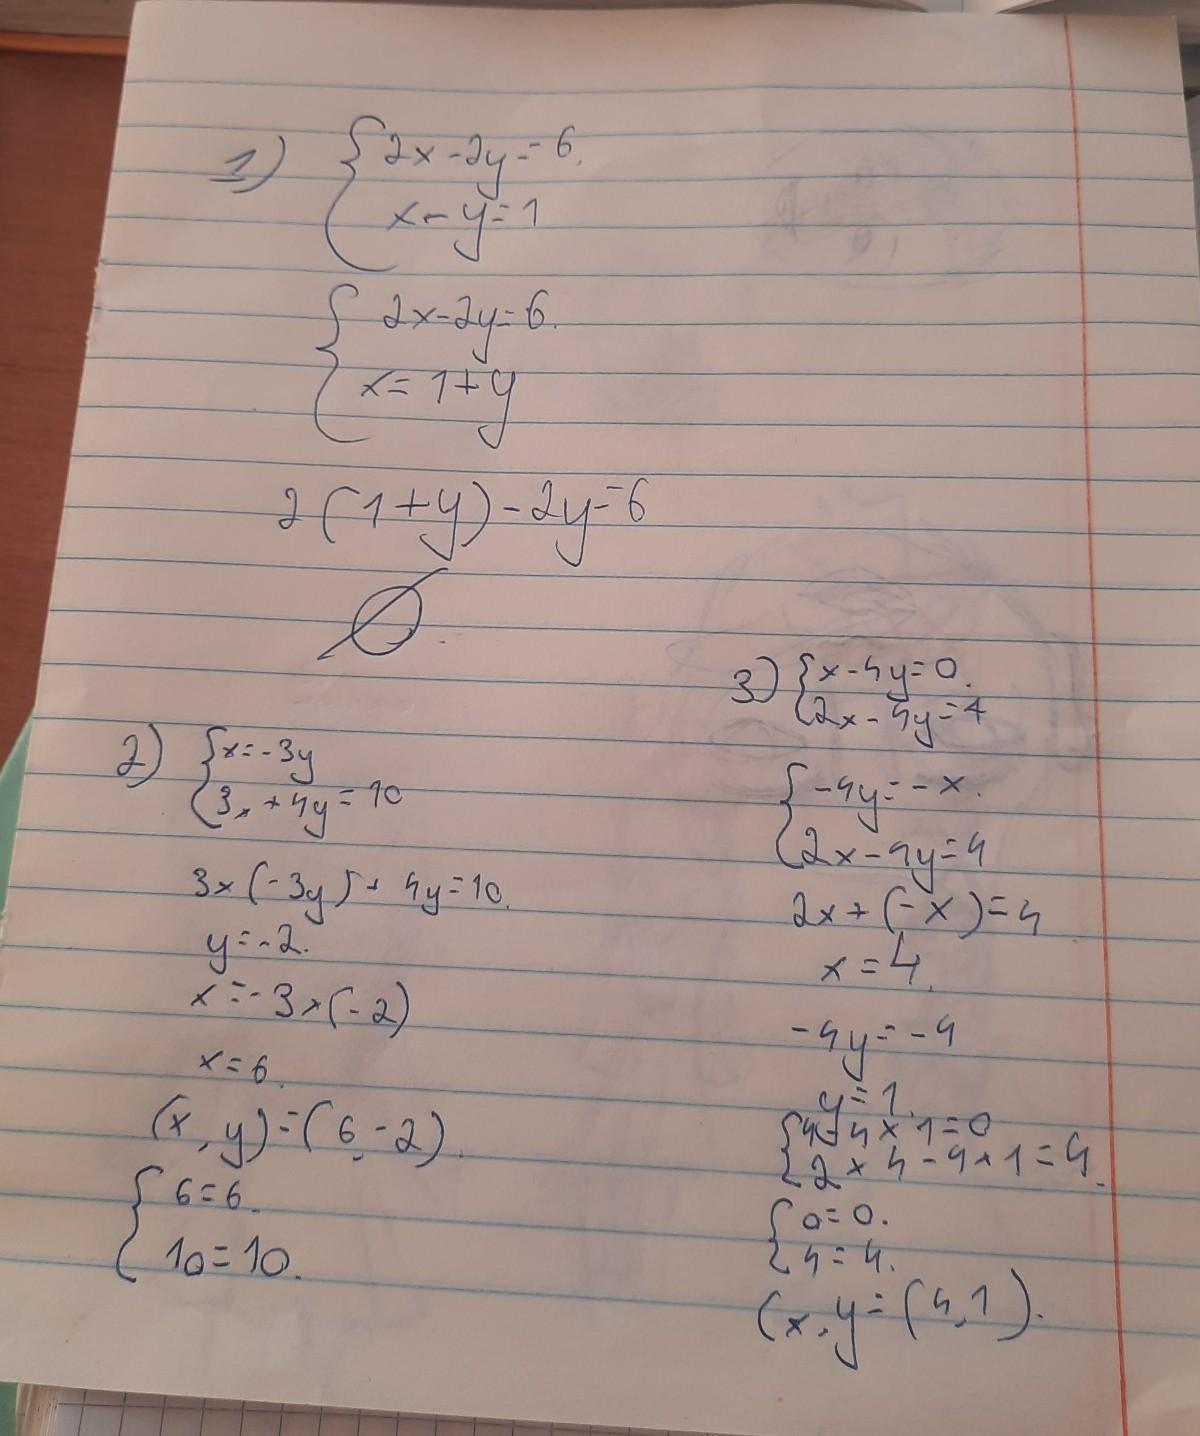 1) {2x-2y=6.
x-y=1
{2x-2y=6.
x=1+y
2(1+y)-2y=6
∅.
2) {x=-3y
3x+4y=10
3x(-3y)+4y=10.
y=-2.
x=-3×(-2)
x=6.
(x,y)=(6,-2).
{6=6.
10=10.
3) {x-4y=0.
2x-4y=4
{-4y=-x.
2x-4y=4
2x+(-x)=4
x=4.
-4y=-4
y=1.
{4-4×1=0
2×4-4×1=4.
{0=0.
4=4.
(x,y=(4,1).